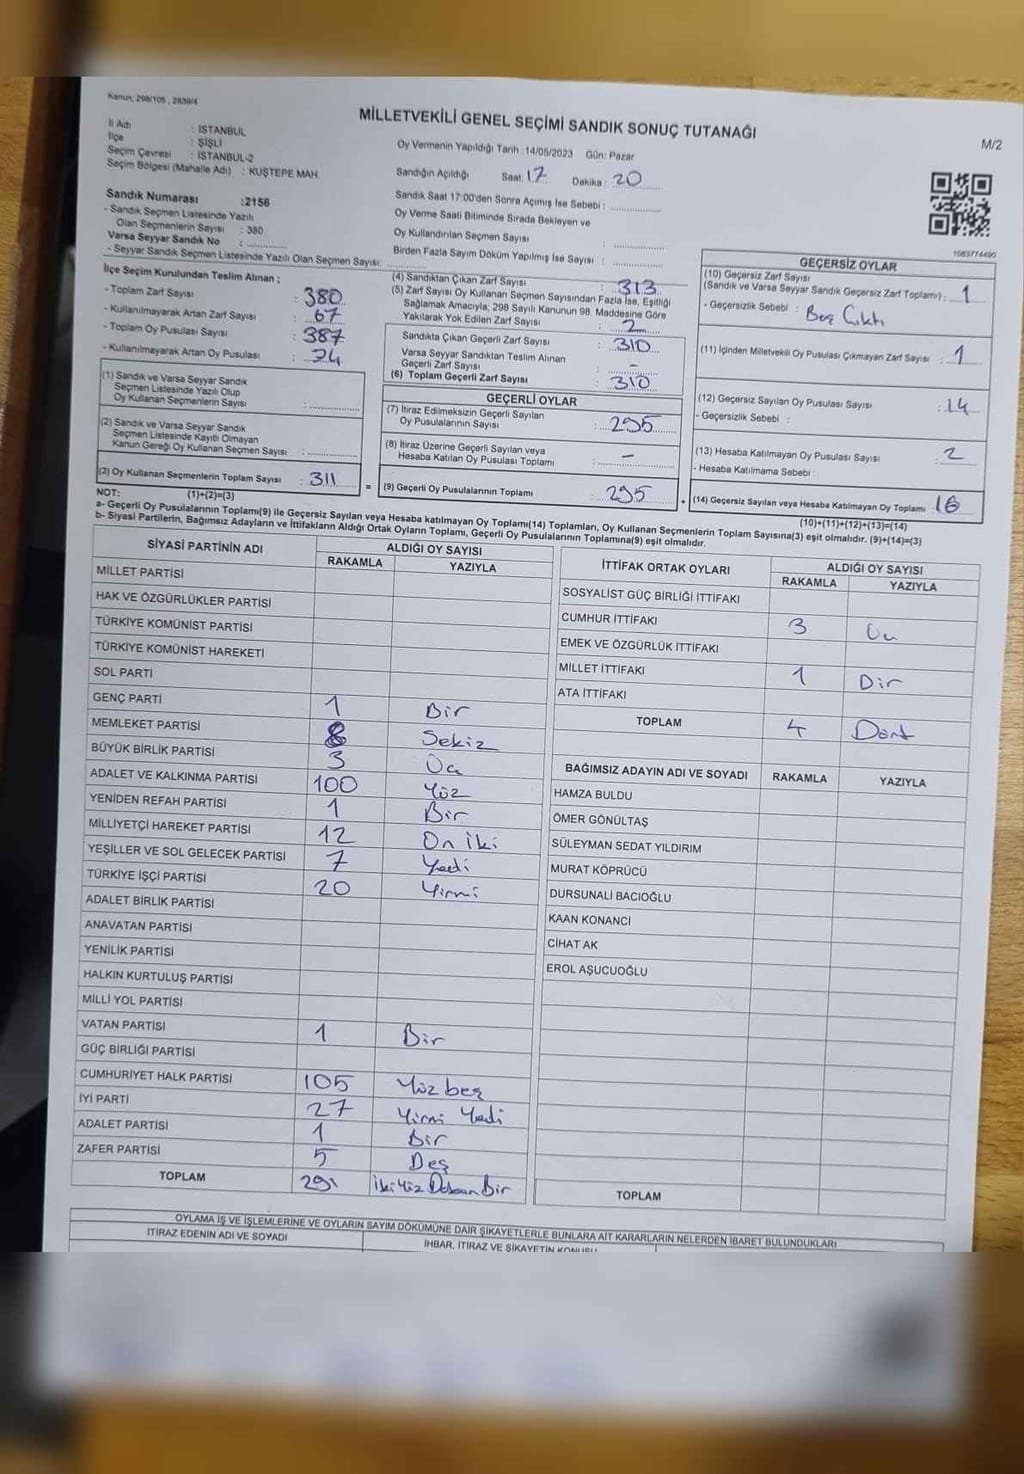 Kanun, 298/105 , 2839/4
MİLLETVEKİLİ GENEL SEÇİMİ SANDIK SONUÇ TUTANAĞI
M/2
İl Adı : İSTANBUL
İlçe : ŞİŞLİ
Seçim Çevresi : İSTANBUL-2
Seçim Bölgesi (Mahalle Adı) : KUŞTEPE MAH.
Oy Vermenin Yapıldığı Tarih : 14/05/2023 Gün: Pazar
Sandığın Açıldığı Saat: 17 Dakika : 20
Sandık Saat 17:00'den Sonra Açımış İse Sebebi :
Oy Verme Saati Bitiminde Sırada Bekleyen ve
Oy Kullandırılan Seçmen Sayısı :
Birden Fazla Sayım Döküm Yapılmış İse Sayısı :
Sandık Numarası :2156
- Sandık Seçmen Listesinde Yazılı
Olan Seçmenlerin Sayısı : 380
Varsa Seyyar Sandık No :
- Seyyar Sandık Seçmen Listesinde Yazılı Olan Seçmen Sayısı:
İlçe Seçim Kurulundan Teslim Alınan ;
- Toplam Zarf Sayısı : 380
- Kullanılmayarak Artan Zarf Sayısı : 67
- Toplam Oy Pusulası Sayısı : 387
- Kullanılmayarak Artan Oy Pusulası : 74
(1) Sandık ve Varsa Seyyar Sandık
Seçmen Listesinde Yazılı Olup
Oy Kullanan Seçmenlerin Sayısı :
(2) Sandık ve Varsa Seyyar Sandık
Seçmen Listesinde Kayıtlı Olmayan
Kanun Gereği Oy Kullanan Seçmen Sayısı :
(3) Oy Kullanan Seçmenlerin Toplam Sayısı : 311
(1)+(2)=(3)
(4) Sandıktan Çıkan Zarf Sayısı : 313
(5) Zarf Sayısı Oy Kullanan Seçmen Sayısından Fazla İse, Eşitliği
Sağlamak Amacıyla; 298 Sayılı Kanunun 98. Maddesine Göre
Yakılarak Yok Edilen Zarf Sayısı : 2
Sandıkta Çıkan Geçerli Zarf Sayısı : 310
Varsa Seyyar Sandıktan Teslim Alınan
Geçerli Zarf Sayısı : -
(6) Toplam Geçerli Zarf Sayısı : 310
GEÇERLİ OYLAR
(7) İtiraz Edilmeksizin Geçerli Sayılan
Oy Pusulalarının Sayısı : 295
(8) İtiraz Üzerine Geçerli Sayılan veya
Hesaba Katılan Oy Pusulası Toplamı : -
= (9) Geçerli Oy Pusulalarının Toplamı : 295
1083774490
GEÇERSİZ OYLAR
(10) Geçersiz Zarf Sayısı
(Sandık ve Varsa Seyyar Sandık Geçersiz Zarf Toplamı) : 1
- Geçersizlik Sebebi : Boş Çıktı
(11) İçinden Milletvekili Oy Pusulası Çıkmayan Zarf Sayısı : 1
(12) Geçersiz Sayılan Oy Pusulası Sayısı : 14
- Geçersizlik Sebebi :
(13) Hesaba Katılmayan Oy Pusulası Sayısı : 2
- Hesaba Katılmama Sebebi :
+ (14) Geçersiz Sayılan veya Hesaba Katılmayan Oy Toplamı 16
(10)+(11)+(12)+(13)=(14)
NOT:
a- Geçerli Oy Pusulalarının Toplamı(9) ile Geçersiz Sayılan veya Hesaba katılmayan Oy Toplamı(14) Toplamları, Oy Kullanan Seçmenlerin Toplam Sayısına(3) eşit olmalıdır. (9)+(14)=(3)
b- Siyasi Partilerin, Bağımsız Adayların ve İttifakların Aldığı Ortak Oyların Toplamı, Geçerli Oy Pusulalarının Toplamına(9) eşit olmalıdır.
SİYASİ PARTİNİN ADI ALDIĞI OY SAYISI
RAKAMLA YAZIYLA
MİLLET PARTİSİ
HAK VE ÖZGÜRLÜKLER PARTİSİ
TÜRKİYE KOMÜNİST PARTİSİ
TÜRKİYE KOMÜNİST HAREKETİ
SOL PARTİ
GENÇ PARTİ 1 Bir
MEMLEKET PARTİSİ 8 Sekiz
BÜYÜK BİRLİK PARTİSİ 3 Üç
ADALET VE KALKINMA PARTİSİ 100 Yüz
YENİDEN REFAH PARTİSİ 1 Bir
MİLLİYETÇİ HAREKET PARTİSİ 12 On iki
YEŞİLLER VE SOL GELECEK PARTİSİ 7 Yedi
TÜRKİYE İŞÇİ PARTİSİ 20 Yirmi
ADALET BİRLİK PARTİSİ
ANAVATAN PARTİSİ
YENİLİK PARTİSİ
HALKIN KURTULUŞ PARTİSİ
MİLLİ YOL PARTİSİ
VATAN PARTİSİ 1 Bir
GÜÇ BİRLİĞİ PARTİSİ
CUMHURİYET HALK PARTİSİ 105 Yüz beş
İYİ PARTİ 27 Yirmi Yedi
ADALET PARTİSİ 1 Bir
ZAFER PARTİSİ 5 Beş
TOPLAM 291 İki Yüz Doksan Bir
İTTİFAK ORTAK OYLARI ALDIĞI OY SAYISI
RAKAMLA YAZIYLA
SOSYALİST GÜÇ BİRLİĞİ İTTİFAKI
CUMHUR İTTİFAKI 3 Üç
EMEK VE ÖZGÜRLÜK İTTİFAKI
MİLLET İTTİFAKI 1 Bir
ATA İTTİFAKI
TOPLAM 4 Dört
BAĞIMSIZ ADAYIN ADI VE SOYADI RAKAMLA YAZIYLA
HAMZA BULDU
ÖMER GÖNÜLTAŞ
SÜLEYMAN SEDAT YILDIRIM
MURAT KÖPRÜCÜ
DURSUNALİ BACIOĞLU
KAAN KONANCİ
CİHAT AK
EROL AŞUCUOĞLU
TOPLAM
OYLAMA İŞ VE İŞLEMLERİNE VE OYLARIN SAYIM DÖKÜMÜNE DAİR ŞİKAYETLERLE BUNLARA AİT KARARLARIN NELERDEN İBARET BULUNDUKLARI
İTİRAZ EDENİN ADI VE SOYADI
İHBAR, İTİRAZ VE ŞİKAYETİN KONUSU